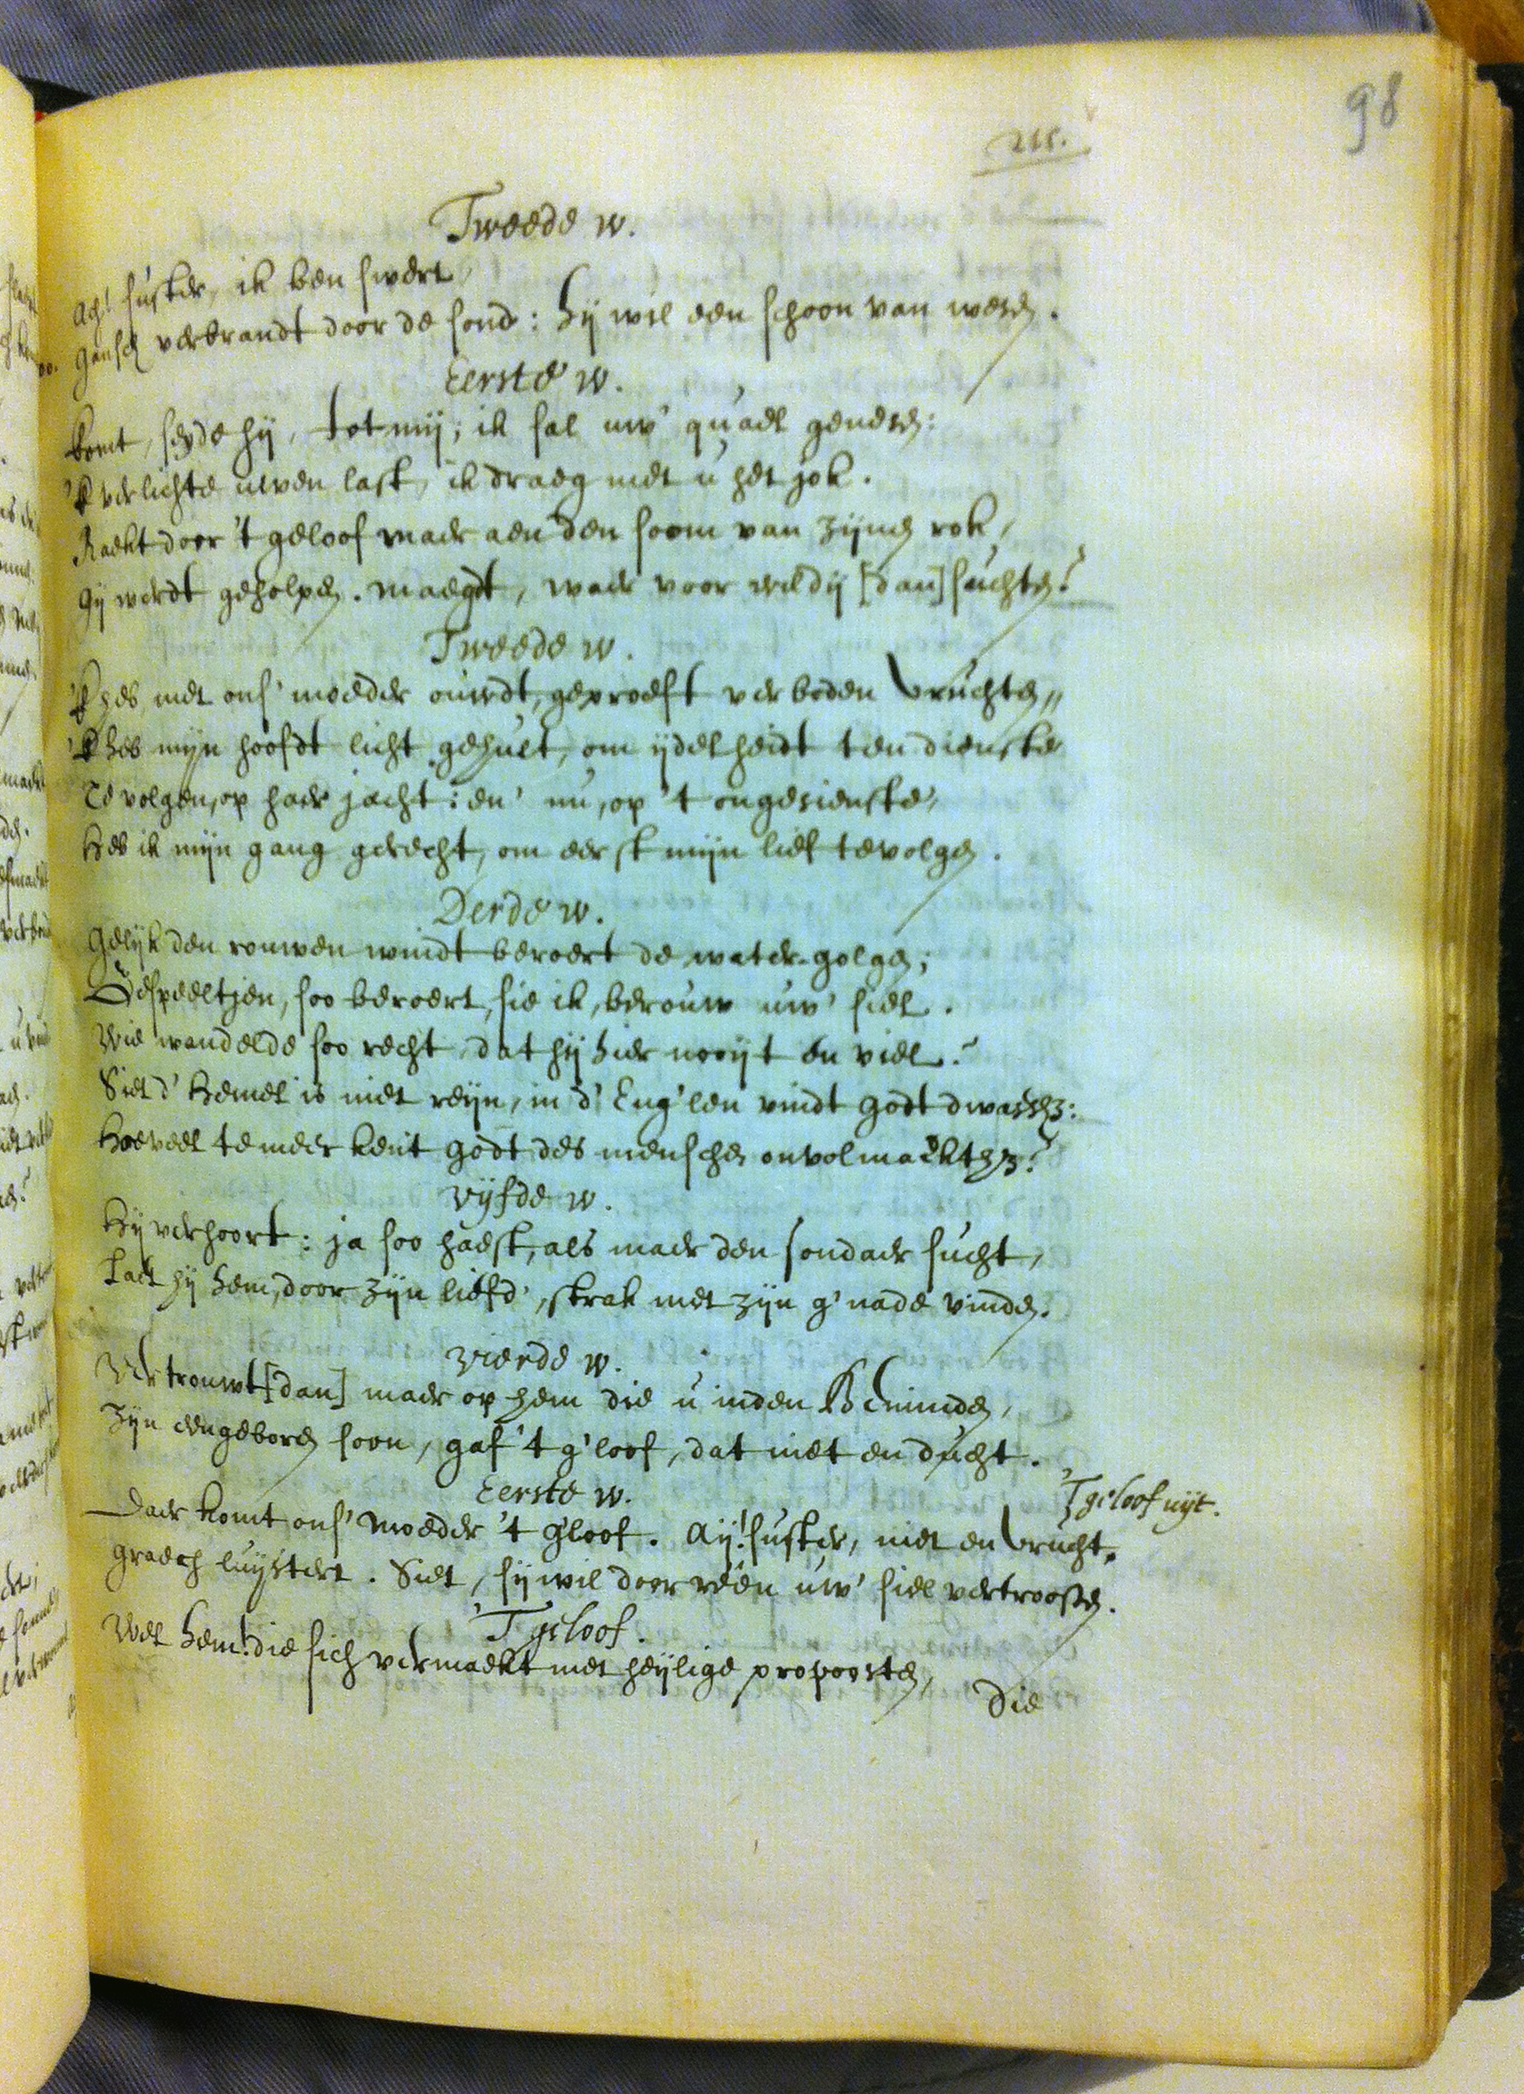 98
215.
Tweede w.
Ach! suster, ik ben swert
gansch verbrandt door de sond: hy wil een schoon van wesen.
Eerste w.
komt, seyde hy, tot mij; ik sal uw' quael genesen:
'K verlichte uwen last, ik draeg met u het jok.
Raekt door 't geloof maer aen den soom van zijnen rok,
Gy werdt geholpen. maegdt, waer voor wildy [dan] suchten?
Tweede w.
'K heb, met ons' moeder ouwdt, geproeft verboden vruchten,
'K heb mijn hoofdt licht gehult, om ydelheidt ten dienste
Te volgen, op haer jacht: en' nu, op 't ongesienste,
Heb ik mijn gang gerecht, om eerst mijn lief te volgen.
Derde w.
Gelijk den rouwen windt beroert de water-golgen;
Gespeeltjen, soo beroert, sie ik, berouw uw' siel.
Wie wandelde soo recht, dat hy hier nooyt en viel?
Siet d' Hemel is niet reyn, in d' Eng'len vindt Godt dwaesheyt:
Hoeveel te meer kent Godt des menschen onvolmaektheyt?
Vyfde w.
Hy verhoort: ja soo haest, als maer den sondaer sucht,
Laet hy hem, door zijn liefd', strak met zijn g'nade vinden.
Vierde w.
Vertrouwt [dan] maer op hem die u inden Beminden,
Zijn eengeboren soon, gaf 't g'loof, dat niet en ducht.
Eerste w.
'T geloof uyt.
Daer komt ons' Moeder 't g'loof. Ay! suster, niet en vrucht,
graech luystert. Siet, sy wil door reën uw' siel vertroosten.
'T geloof.
Wel hem! die sich vermaekt met heylige propoosten,
Die